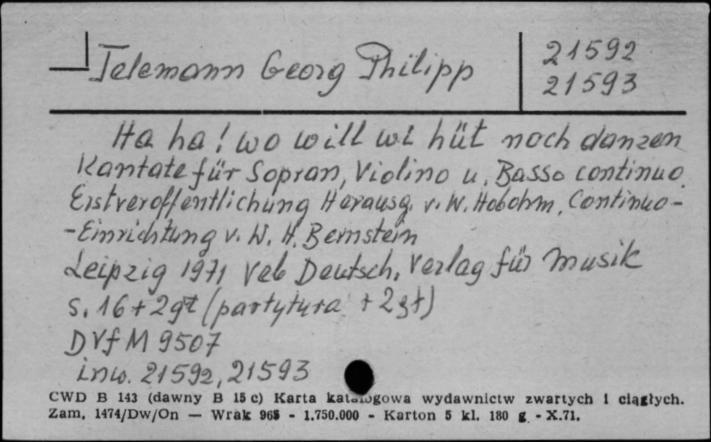 Telemann Georg Philipp
21592
21593
Ha ha! wo will wi hüt noch danzen
Kantate für Sopran, Violino u. Basso continuo.
Erstveröffentlichung Herausg. v. W. Hobohm. Continuo-
-Einrichtung v. W. H. Bernstein
Leipzig 1971 Veb Deutsch. Verlag für Musik
s. 16 + 2gł (partytura + 2gł)
DVfM 9507
inw. 21592, 21593
CWD B 143 (dawny B 15 c) Karta katalogowa wydawnictw zwartych i ciągłych.
Zam. 1474/Dw/On — Wrak 965 - 1.750.000 - Karton 5 kl. 180 g - X.71.